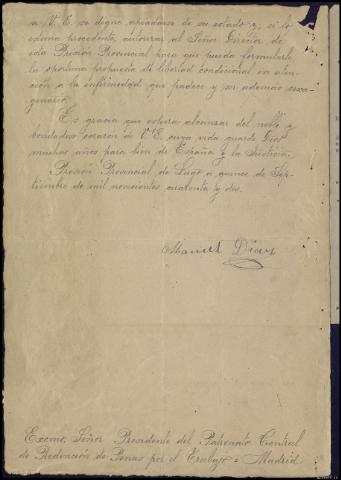 a V. E. se digne apiadarse de su estado y, si lo
estima procedente, autorizar al Señor Director de
esta Prisión Provincial para que pueda formularle
la oportuna propuesta de libertad condicional en aten-
ción a la enfermedad que padece y ser además sexa-
genario.
Es gracia que espera alcanzar del noble y
bondadoso corazón de V. E. cuya vida guarde Dios
muchos años para bien de España y la Justicia.
Prisión Provincial de Lugo a quince de Sep-
tiembre de mil novecientos cuarenta y dos.
Manuel Díaz
Excmo. Señor Presidente del Patronato Central
de Redención de Penas por el Trabajo = Madrid